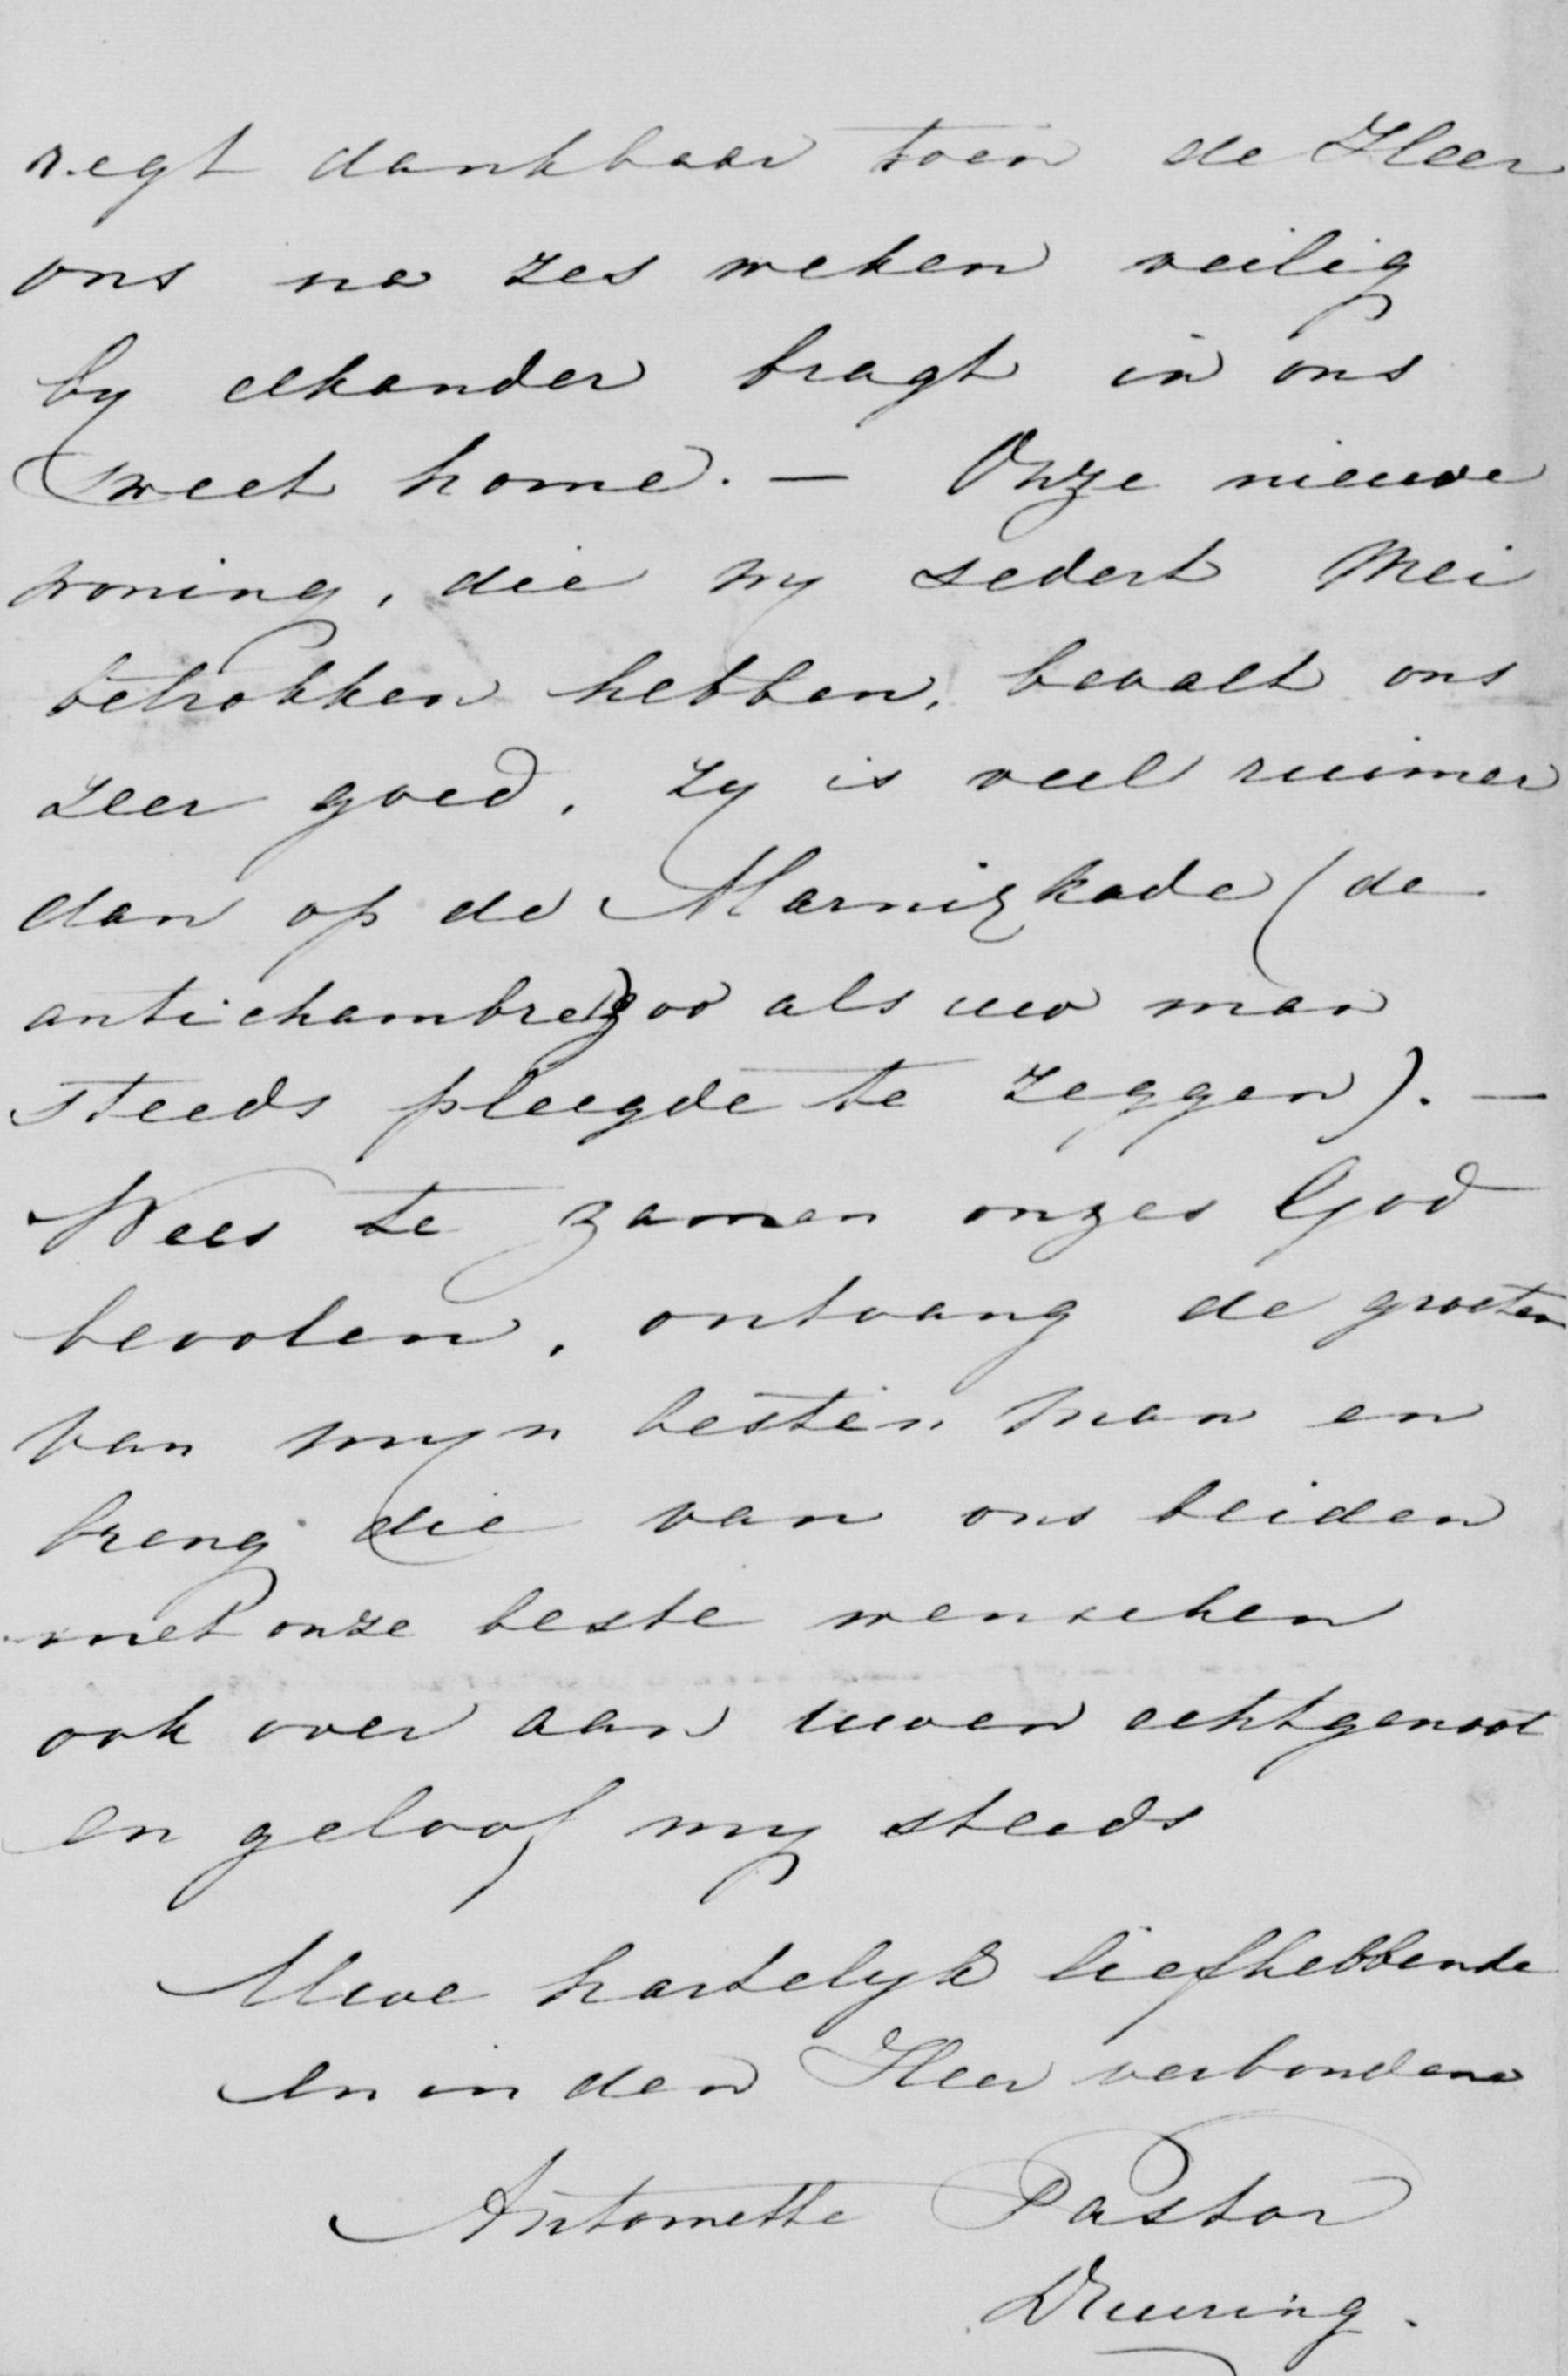 regt dankbaar toen de Heer
ons na zes weken veilig
by elkander bragt in ons
Sweet home. — Onze nieuwe
woning, die wy sedert Mei
betrokken hebben, bevalt ons
zeer goed, zy is veel ruimer
dan op de Marnixkade (de
antichambre zoo als uw man
steeds pleegde te zeggen). —
Wees te zamen onzes God
bevolen, ontvang de groeten
van myn besten man en
breng die van ons beiden
met onze beste wenschen
ook over aan uwen echtgenoot
en geloof my steeds
Uwe hartelyk liefhebbende
en in den Heer verbondene
Antoinette Pastor